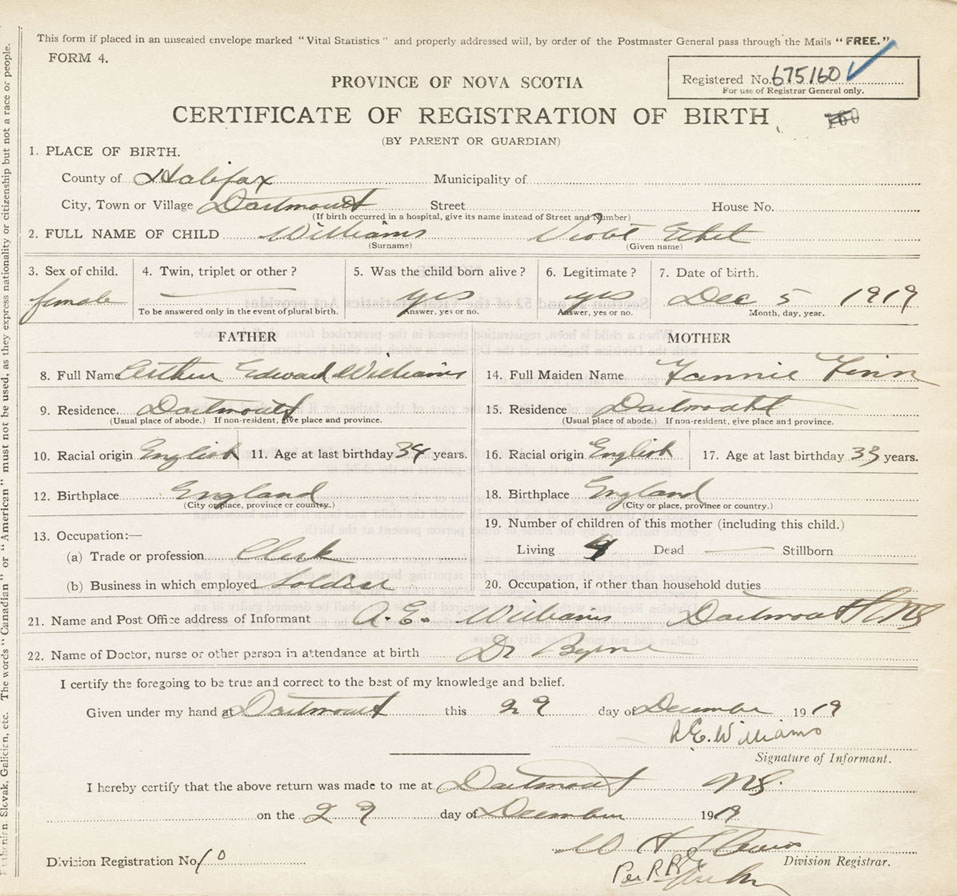 This form if placed in an unsealed envelope marked "Vital Statistics" and properly addressed will, by order of the Postmaster General pass through the Mails "FREE."
FORM 4.
Registered No. 675160
For use of Registrar General only.
PROVINCE OF NOVA SCOTIA
CERTIFICATE OF REGISTRATION OF BIRTH
160
(BY PARENT OR GUARDIAN)
1. PLACE OF BIRTH.
County of Halifax Municipality of
City, Town or Village Dartmouth Street House No.
(If birth occurred in a hospital, give its name instead of Street and Number)
2. FULL NAME OF CHILD Williams Violet Ethel
(Surname) (Given name)
3. Sex of child. 4. Twin, triplet or other? 5. Was the child born alive? 6. Legitimate? 7. Date of birth.
female yes yes Dec 5 1919
To be answered only in the event of plural birth. Answer, yes or no. Answer, yes or no. Month, day, year.
FATHER MOTHER
8. Full Name Arthur Edward Williams 14. Full Maiden Name Fannie Finn
9. Residence. Dartmouth 15. Residence Dartmouth
(Usual place of abode.) If non-resident, give place and province. (Usual place of abode.) If non-resident, give place and province.
10. Racial origin English 11. Age at last birthday 34 years. 16. Racial origin English 17. Age at last birthday 33 years.
12. Birthplace England 18. Birthplace England
(City or place, province or country.) (City or place, province or country.)
19. Number of children of this mother (including this child.)
13. Occupation:—
Living 4 Dead Stillborn
(a) Trade or profession Clerk
(b) Business in which employed Soldier 20. Occupation, if other than household duties
21. Name and Post Office address of Informant A. E. Williams Dartmouth NS
22. Name of Doctor, nurse or other person in attendance at birth Dr Byrne
I certify the foregoing to be true and correct to the best of my knowledge and belief.
Given under my hand at Dartmouth this 29 day of December 1919
A.E. Williams
Signature of Informant.
I hereby certify that the above return was made to me at Dartmouth NS.
on the 29 day of December 1919
W H
Division Registration No. 10 Division Registrar.
Per
Slovak, Galicien, etc. The words "Canadian" or "American" must not be used, as they express nationality or citizenship but not a race or people.